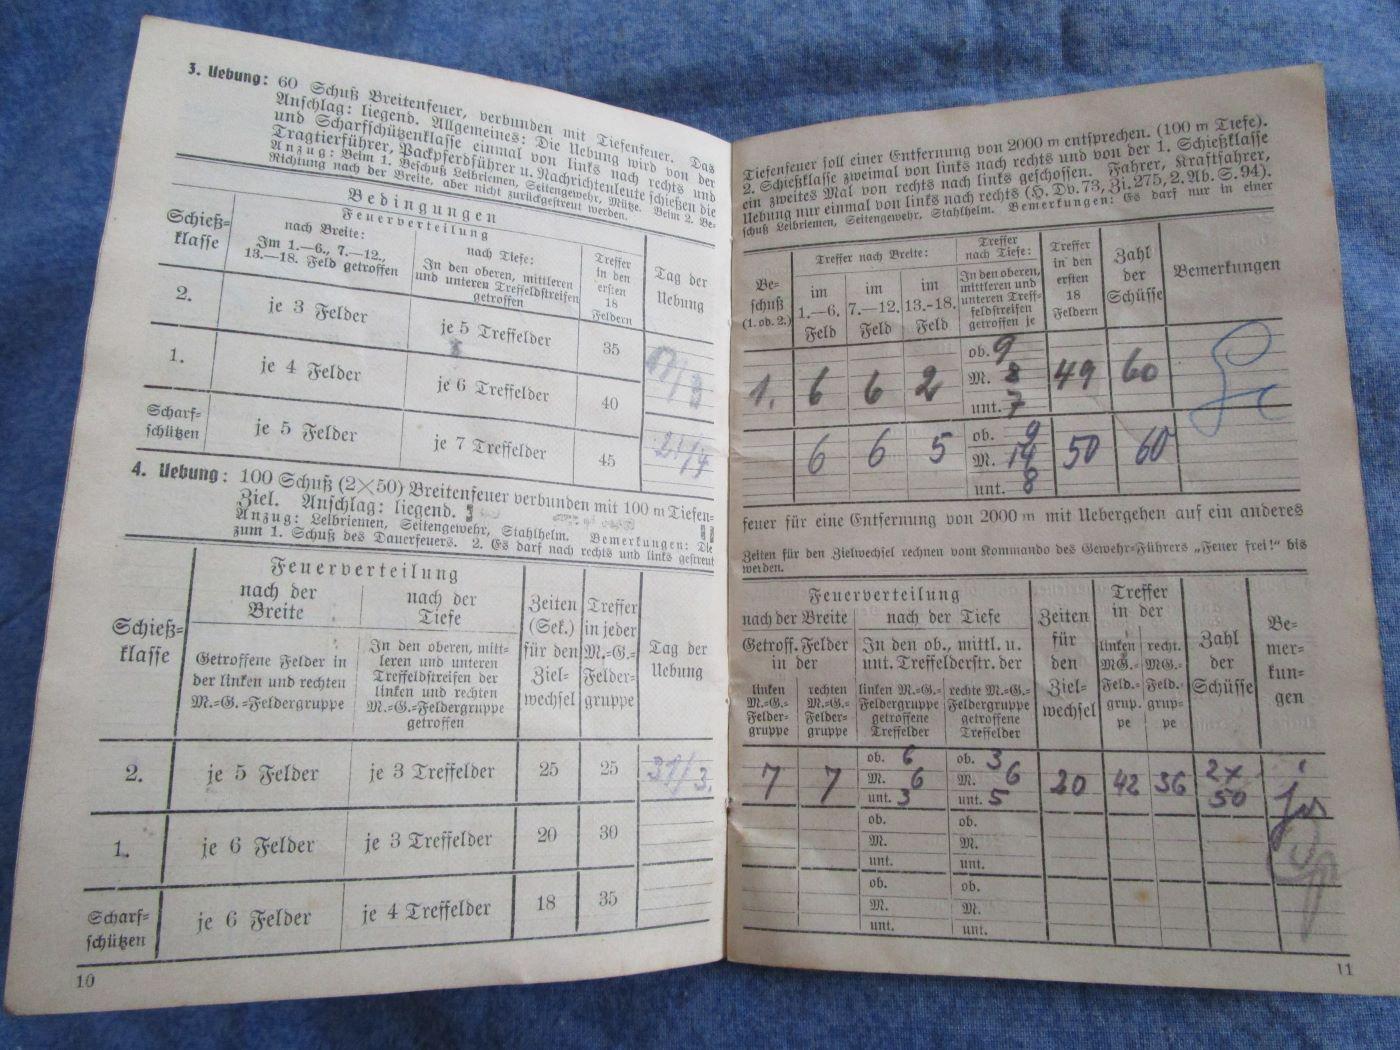 3. Uebung: 60 Schuß Breitenfeuer, verbunden mit Tiefenfeuer. Das
Anschlag: liegend. Allgemeines: Die Uebung wird von der
und Scharfschützenklasse einmal von links nach rechts und
Tragtierführer, Packpferdführer u. Nachrichtenleute schießen die
Anzug: Beim 1. Beschuß Leibriemen, Seitengewehr, Mütze. Beim 2. Be-
Richtung nach der Breite, aber nicht zurückgestreut werden.
Bedingungen
Schieß-
klasse
Feuerverteilung
nach Breite:
Im 1.—6., 7.—12.,
13.—18. Feld getroffen
nach Tiefe:
In den oberen, mittleren
und unteren Treffeldstreifen
getroffen
Treffer
in den
ersten
18
Feldern
Tag der
Uebung
2. je 3 Felder je 5 Treffelder 35 17/3
1. je 4 Felder je 6 Treffelder 40
Scharf-
schützen je 5 Felder je 7 Treffelder 45
4. Uebung: 100 Schuß (2×50) Breitenfeuer verbunden mit 100 m Tiefen-
Ziel. Anschlag: liegend.
Anzug: Leibriemen, Seitengewehr, Stahlhelm. Bemerkungen: Die
zum 1. Schuß des Dauerfeuers. 2. Es darf nach rechts und links gestreut
Schieß-
klasse
Feuerverteilung
nach der
Breite
Getroffene Felder in
der linken und rechten
M.-G.-Feldergruppe
nach der
Tiefe
In den oberen, mitt-
leren und unteren
Treffeldstreifen der
linken und rechten
M.-G.-Feldergruppe
getroffen
Zeiten
(Sek.)
für den
Ziel-
wechsel
Treffer
in jeder
M.-G.-
Felder-
gruppe
Tag der
Uebung
2. je 5 Felder je 3 Treffelder 25 25 31/3.
1. je 6 Felder je 3 Treffelder 20 30
Scharf-
schützen je 6 Felder je 4 Treffelder 18 35
10
Tiefenfeuer soll einer Entfernung von 2000 m entsprechen. (100 m Tiefe).
2. Schießklasse zweimal von links nach rechts und von der 1. Schießklasse
ein zweites Mal von rechts nach links geschossen. Fahrer, Kraftfahrer,
Uebung nur einmal von links nach rechts (H. Dv. 73, Zi. 275, 2. Ab. S. 94).
schuß Leibriemen, Seitengewehr, Stahlhelm. Bemerkungen: Es darf nur in einer
Be-
schuß
(1. ob. 2.)
Treffer nach Breite:
im
1.—6.
Feld
im
7.—12.
Feld
im
13.-18.
Feld
Treffer
nach Tiefe:
In den oberen,
mittleren und
unteren Treff-
feldstreifen
getroffen je
Treffer
in den
ersten
18
Feldern
Zahl
der
Schüsse
Bemerkungen
1. 6 6 2 ob. 9 49 60
M. 8
unt. 7
6 6 5 ob. 9 50 60
M. 14
unt. 8
feuer für eine Entfernung von 2000 m mit Uebergehen auf ein anderes
Zeiten für den Zielwechsel rechnen vom Kommando des Gewehr-Führers „Feuer frei!“ bis
werden.
Feuerverteilung
nach der Breite
Getroff. Felder
in der
linken
M.-G.-
Felder-
gruppe
rechten
M.-G.-
Felder-
gruppe
nach der Tiefe
In den ob., mittl. u.
unt. Treffelderstr. der
linken M.-G.-
Feldergruppe
getroffene
Treffelder
rechte M.-G.-
Feldergruppe
getroffene
Treffelder
Zeiten
für
den
Ziel-
wechsel
Treffer
in der
linken
MG.-
Feld.-
grup.
pe
recht.
MG.-
Feld.-
grup-
pe
Zahl
der
Schüsse
Be-
mer-
kun-
gen
7 7 ob. 6 ob. 3 20 42 36 2×
M. 6 M. 6 50
unt. 3 unt. 5
ob. ob.
M. M.
unt. unt.
ob. ob.
M. M.
unt. unt.
11